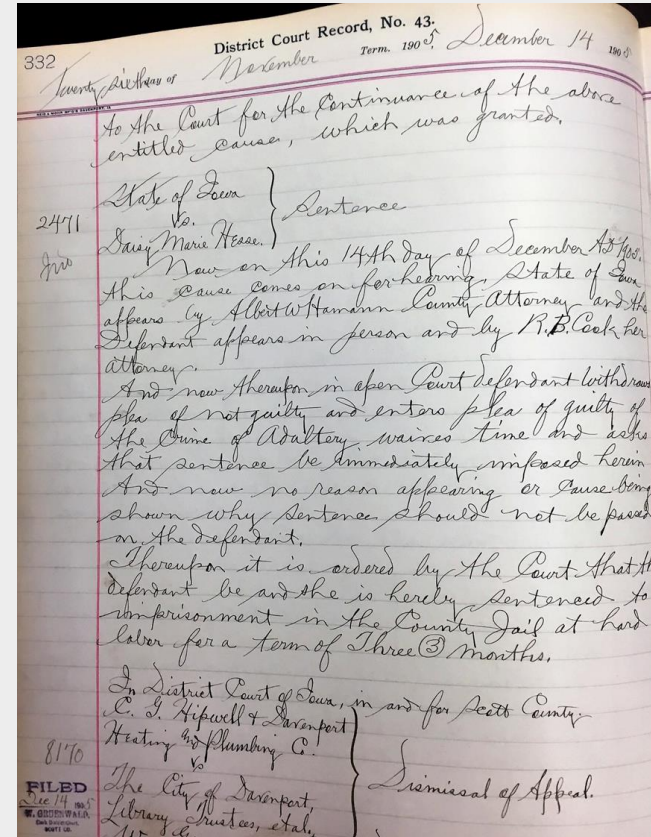 332
District Court Record, No. 43.
Twenty Sixth day of November Term. 1905. December 14 1905
to the Court for the Continuance of the above
entitled cause, which was granted.
State of Iowa
2471 vs. Sentence
Daisy Marie Hesse.
Now on this 14th day of December A.D. 1905.
this cause comes on for hearing, State of Iowa
appears by Albert W Hamann County Attorney and the
Defendant appears in person and by R.B. Cook her
attorney.
And now thereupon in open Court defendant withdraws
plea of not guilty and enters plea of guilty of
the Crime of Adaltery waives time and asks
that sentence be immediately imposed herein
And now no reason appearing or cause being
shown why sentence should not be passed
on the defendant.
Thereupon it is ordered by the Court that th
defendant be and she is hereby sentenced to
imprisonment in the County Jail at hard
labor for a term of Three (3) months.
In District Court of Iowa, in and for Scott County.
C. G. Hipwell & Davenport
Heating and Plumbing C.
8170 vs Dismissal of Appeal.
FILED
Dec 14 1905
The City of Davenport,
Library Trustees, et al.
SCOTT CO.